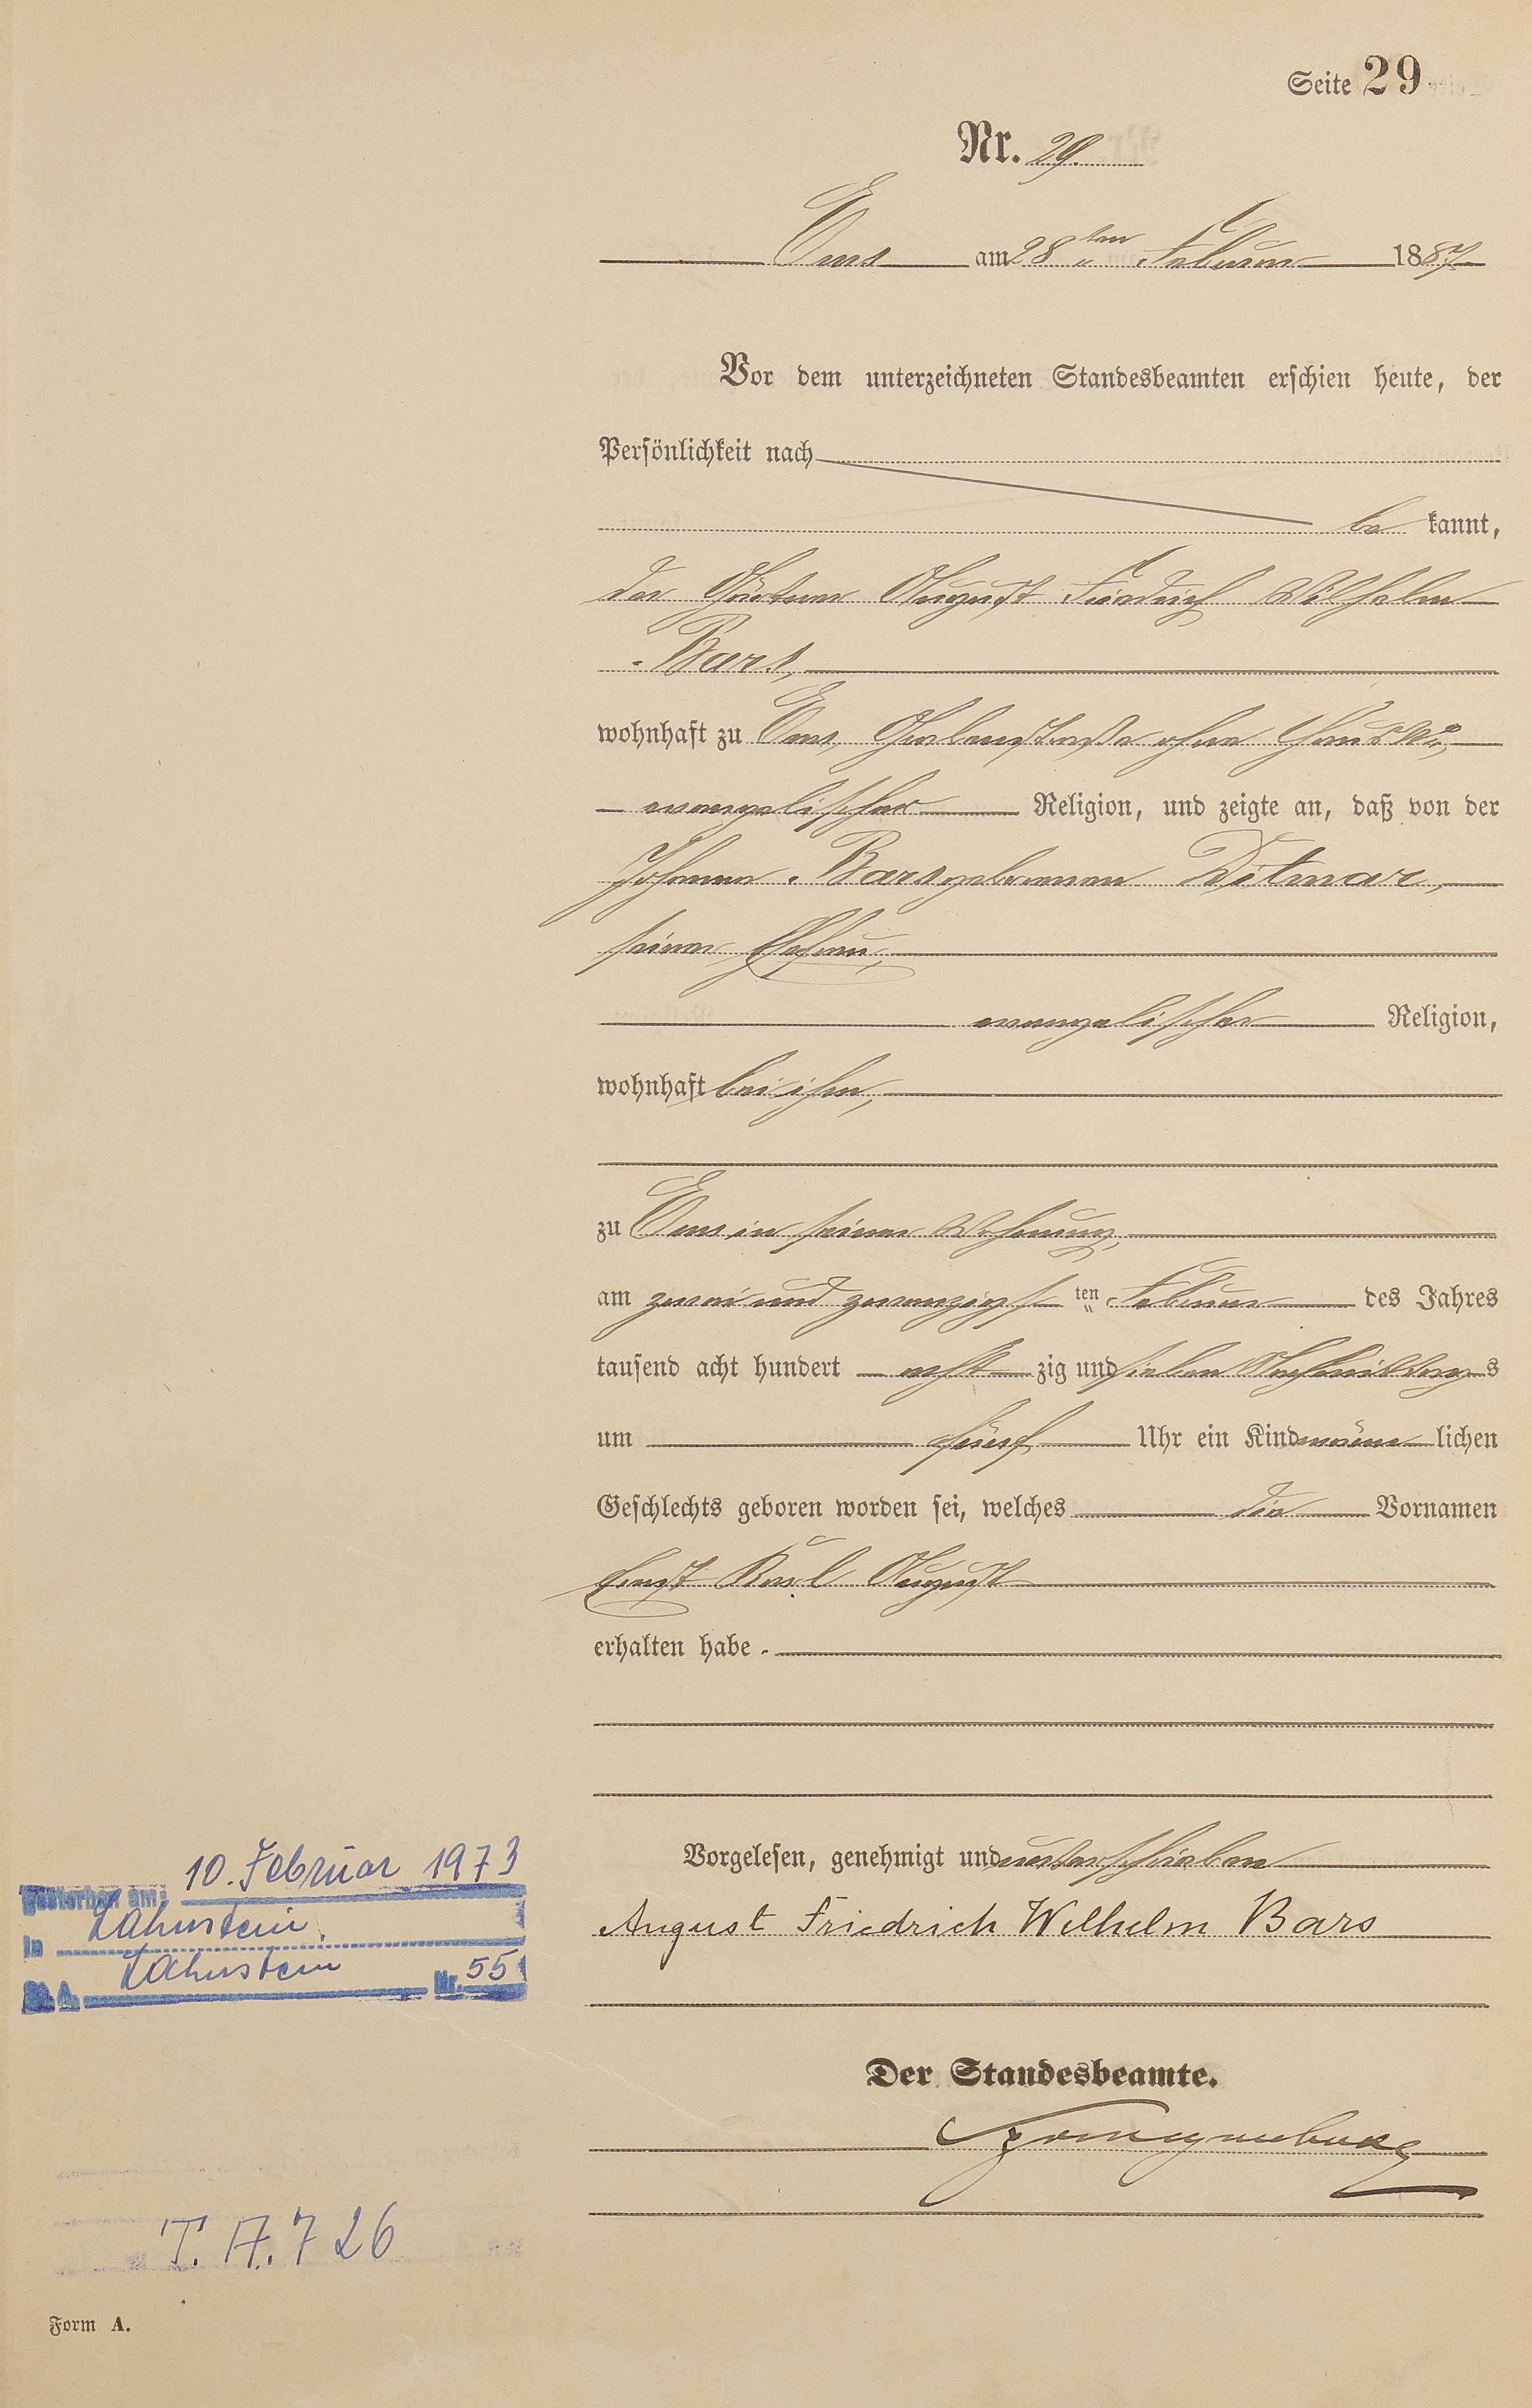 Seite 29
Nr. 29.
Ems am 28ten Februar 1887
Vor dem unterzeichneten Standesbeamten erschien heute, der
Persönlichkeit nach
be kannt,
der Gärtner August Friedrich Wilhelm
Bars,
wohnhaft zu Ems, ohne Haus No,
evangelischer Religion, und zeigte an, daß von der
Johanna Bars geborenen Ditmar,
seiner Ehefrau,
evangelischer Religion,
wohnhaft bei ihm,
zu Ems in seiner Wohnung,
am zwei und zwanzigs ten Februar des Jahres
tausend acht hundert acht zig und sieben Nachmittag s
um fünf Uhr ein Kind männ lichen
Geschlechts geboren worden sei, welches die Vornamen
Ernst Karl August
erhalten habe.
Vorgelesen, genehmigt und unterschrieben
August Friedrich Wilhelm Bars
Der Standesbeamte.
Gestorben am: 10. Februar 1973
in Lahnstein
St. A. Lahnstein Nr. 55
T. A. 726
Form A.